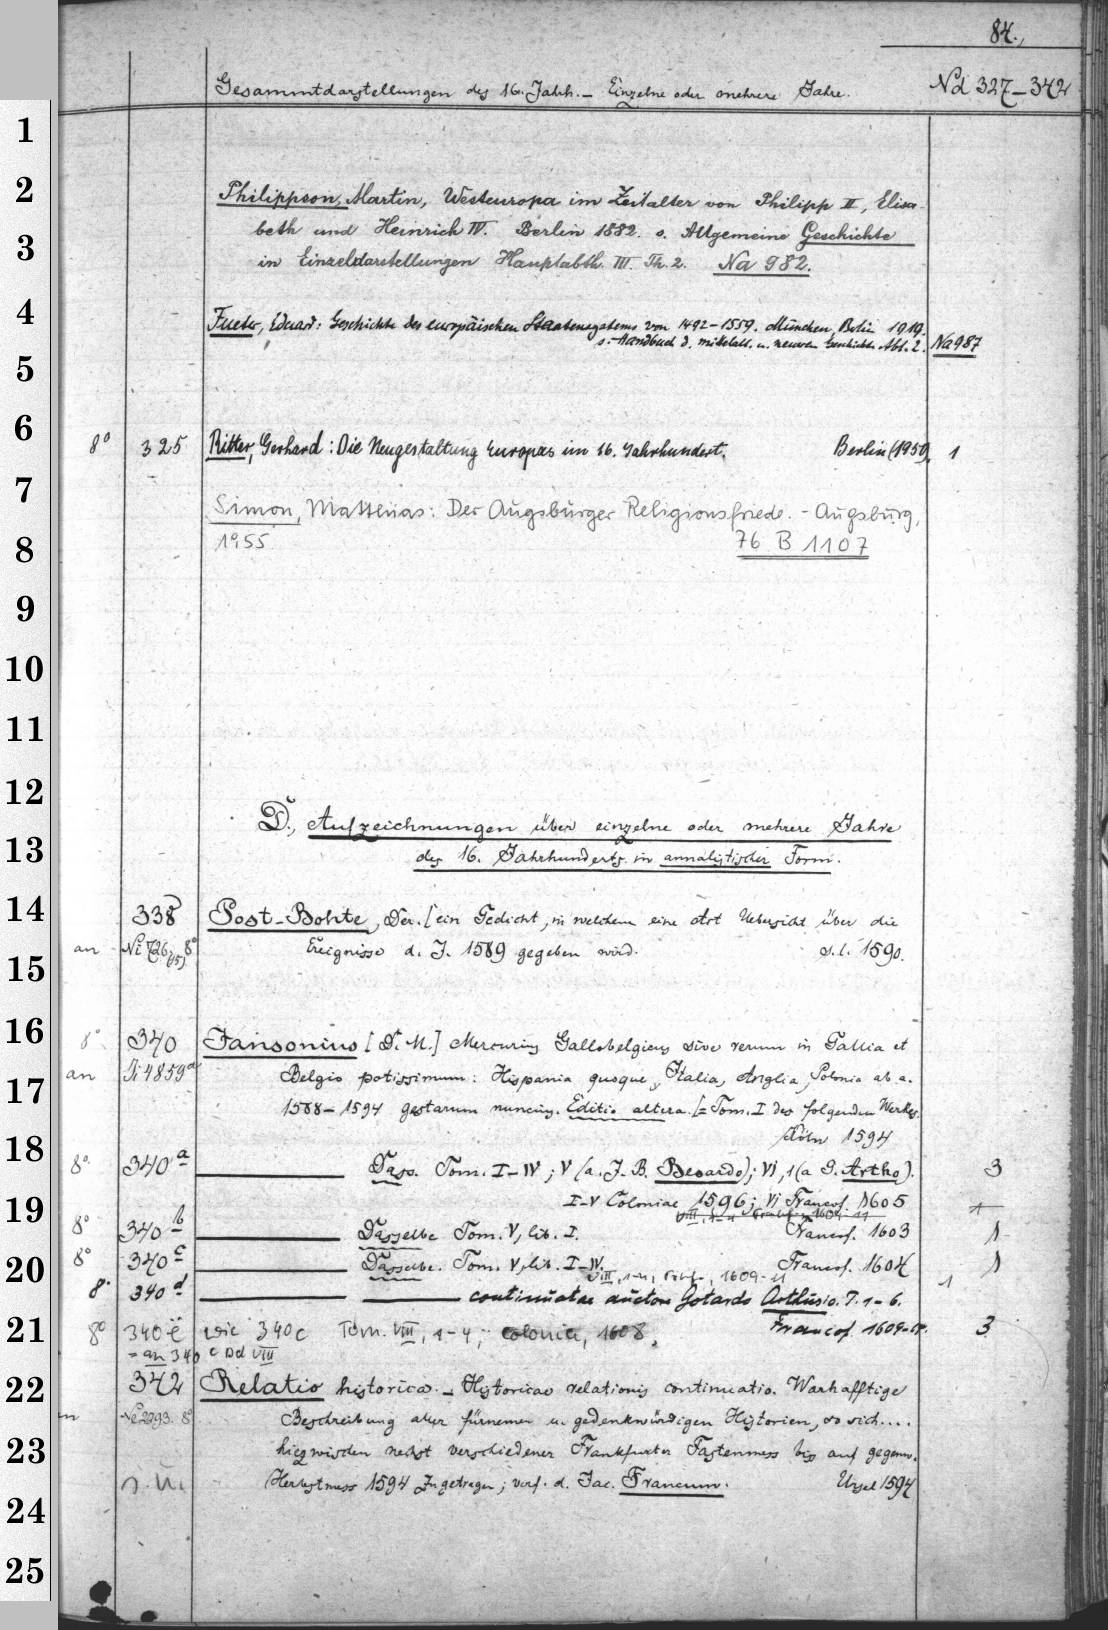 84.
Gesammtdarstellungen des 16. Jahrh. – Einzelne oder mehrere Jahre. Nd 327–342
1
2
Philippson, Martin, Westeuropa im Zeitalter von Philipp II, Elisa-
3
beth und Heinrich IV. Berlin 1882. s. Allgemeine Geschichte
in Einzeldarstellungen Hauptabth. III. Th. 2. Na 982.
4
Fueter, Eduard: Geschichte des europäischen Staatensystems von 1492–1559. München, Berlin 1919.
s. Handbuch d. mittelalt. u. neueren Geschichte Abt. 2. Na 987
5
6
8° 325 Ritter, Gerhard: Die Neugestaltung Europas im 16. Jahrhundert. Berlin (1950). 1
7
Simon, Matthias: Der Augsburger Religionsfriede. – Augsburg,
8
1955 76 B 1107
9
10
11
12
D., Aufzeichnungen über einzelne oder mehrere Jahre
13
des 16. Jahrhunderts in annalistischer Form.
14
338 Post-Bohte, Der. [ein Gedicht, in welchem eine Art Uebersicht über die
an 8° Ereignisse d. J. 1589 gegeben wird. s.l. 1590.
15
16
8° 340 Jansonius [D. M.] Mercurius Gallobelgicus sive rerum in Gallia et
an Belgio potissimum: Hispania quoque, Italia, Anglia, Polonia ab a.
17
1588–1594 gestarum nuncius. Editio altera. [= Tom. I des folgenden Werkes.
Köln 1594
18
8° 340 a Dass. Tom. I–IV; V (a. J. B. Besardo); VI, 1 (a G. Artho). 3
I–V Coloniae 1596; VI Francof. 1605
19
8° 340 b Dasselbe Tom. V, lib. I. Francof. 1603 1
8° 340 c Dasselbe. Tom. V, lib. I–IV. Francof. 1604 1
20
VIII, 1–4, 1609–11
8° 340 d continuatae auctore Gotardo Arthusio. T. 1–6. 1
21
Francof. 1609–
8° 340 e wie 340c Tom. VIII, 1–4; Colonia, 1608, 3
= an 340 c Bd VIII
22
342 Relatio historica. – Historicae relationis continuatio. Warhafftige
Beschreibung aller fürnemen u. gedenkwürdigen Historien, so sich....
23
hiezwischen nechst verschiedener Frankfurter Fastenmess biss auf gegenw.
Herbstmess 1594 zugetragen; verf. d. Jac. Francum. Ursel 1594
24
25